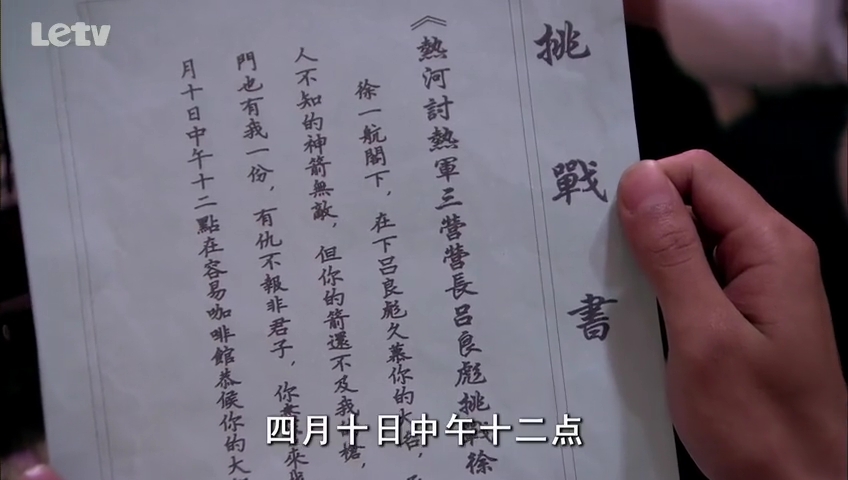 Letv
挑戰書
《熱河討熱軍三營營長呂良彪挑戰徐
徐一航閣下，在下呂良彪久慕你的大名，
人不知的神箭無敵，但你的箭還不及我槍，
門也有我一份，有仇不報非君子，你來
月十日中午十二點在容易咖啡館恭候你的大
四月十日中午十二点